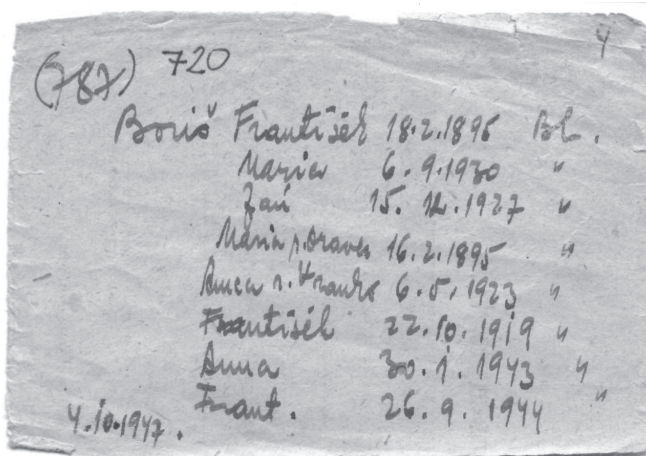 4
(787) 720
Boriš František 18.2.1895 Bl.
Maria 6.9.1930 "
Jan 15.12.1927 "
Maria r. Oravec 16.2.1895 "
Anna r. 6.5.1923 "
František 22.10.1919 "
Anna 30.1.1943 "
Frant. 26.9.1944 "
4.10.1947.